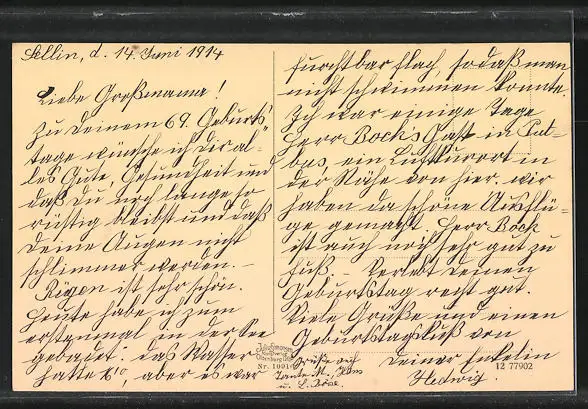 Sellin, d. 14. Juni 1914
Liebe Großmama!
Zu Deinem 69. Geburts=
tage wünsche ich Dir al=
les Gute, Gesundheit und
daß Du noch lange so
rüstig bleibst und daß
Deine Augen nicht
schlimmer werden.
Rügen ist sehr schön.
Heute habe ich zum
erstenmal in der See
gebadet. Das Wasser
hatte 16°, aber es war
furchtbar flach, sodaß man
nicht schwimmen konnte.
Ich war einige Tage
Herr Bochs Gast in Put=
bus, ein Luftkurort in
der Nähe von hier. Wir
haben da schöne Ausflü=
ge gemacht. Herr Boch
ist auch noch sehr gut zu
Fuß. – Verlebt Deinen
Geburtstag recht gut.
Viele Grüße und einen
Geburtstagskuß von
Deiner Enkelin
Hedwig.
Grüße auch
Tante M.
u. L.
Nr. 1001
12 77902